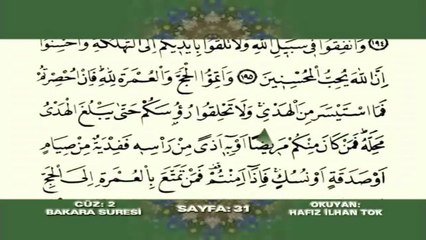 ﴿١٩٤﴾ وَاَنْفِقُوا فٖي سَبٖيلِ اللّٰهِ وَلَا تُلْقُوا بِاَيْدٖيكُمْ اِلَى التَّهْلُكَةِ وَاَحْسِنُوا
اِنَّ اللّٰهَ يُحِبُّ الْمُحْسِنٖينَ ﴿١٩٥﴾ وَاَتِمُّوا الْحَجَّ وَالْعُمْرَةَ لِلّٰهِ فَاِنْ اُحْصِرْتُمْ
فَمَا اسْتَيْسَرَ مِنَ الْهَدْيِ وَلَا تَحْلِقُوا رُؤُسَكُمْ حَتّٰى يَبْلُغَ الْهَدْيُ
مَحِلَّهُ فَمَنْ كَانَ مِنْكُمْ مَرٖيضًا اَوْ بِهٖ اَذًى مِنْ رَاْسِهٖ فَفِدْيَةٌ مِنْ صِيَامٍ
اَوْ صَدَقَةٍ اَوْ نُسُكٍ فَاِذَا اَمِنْتُمْ فَمَنْ تَمَتَّعَ بِالْعُمْرَةِ اِلَى الْحَجِّ
CÜZ: 2 SAYFA: 31 OKUYAN:
BAKARA SURESİ HAFIZ İLHAN TOK